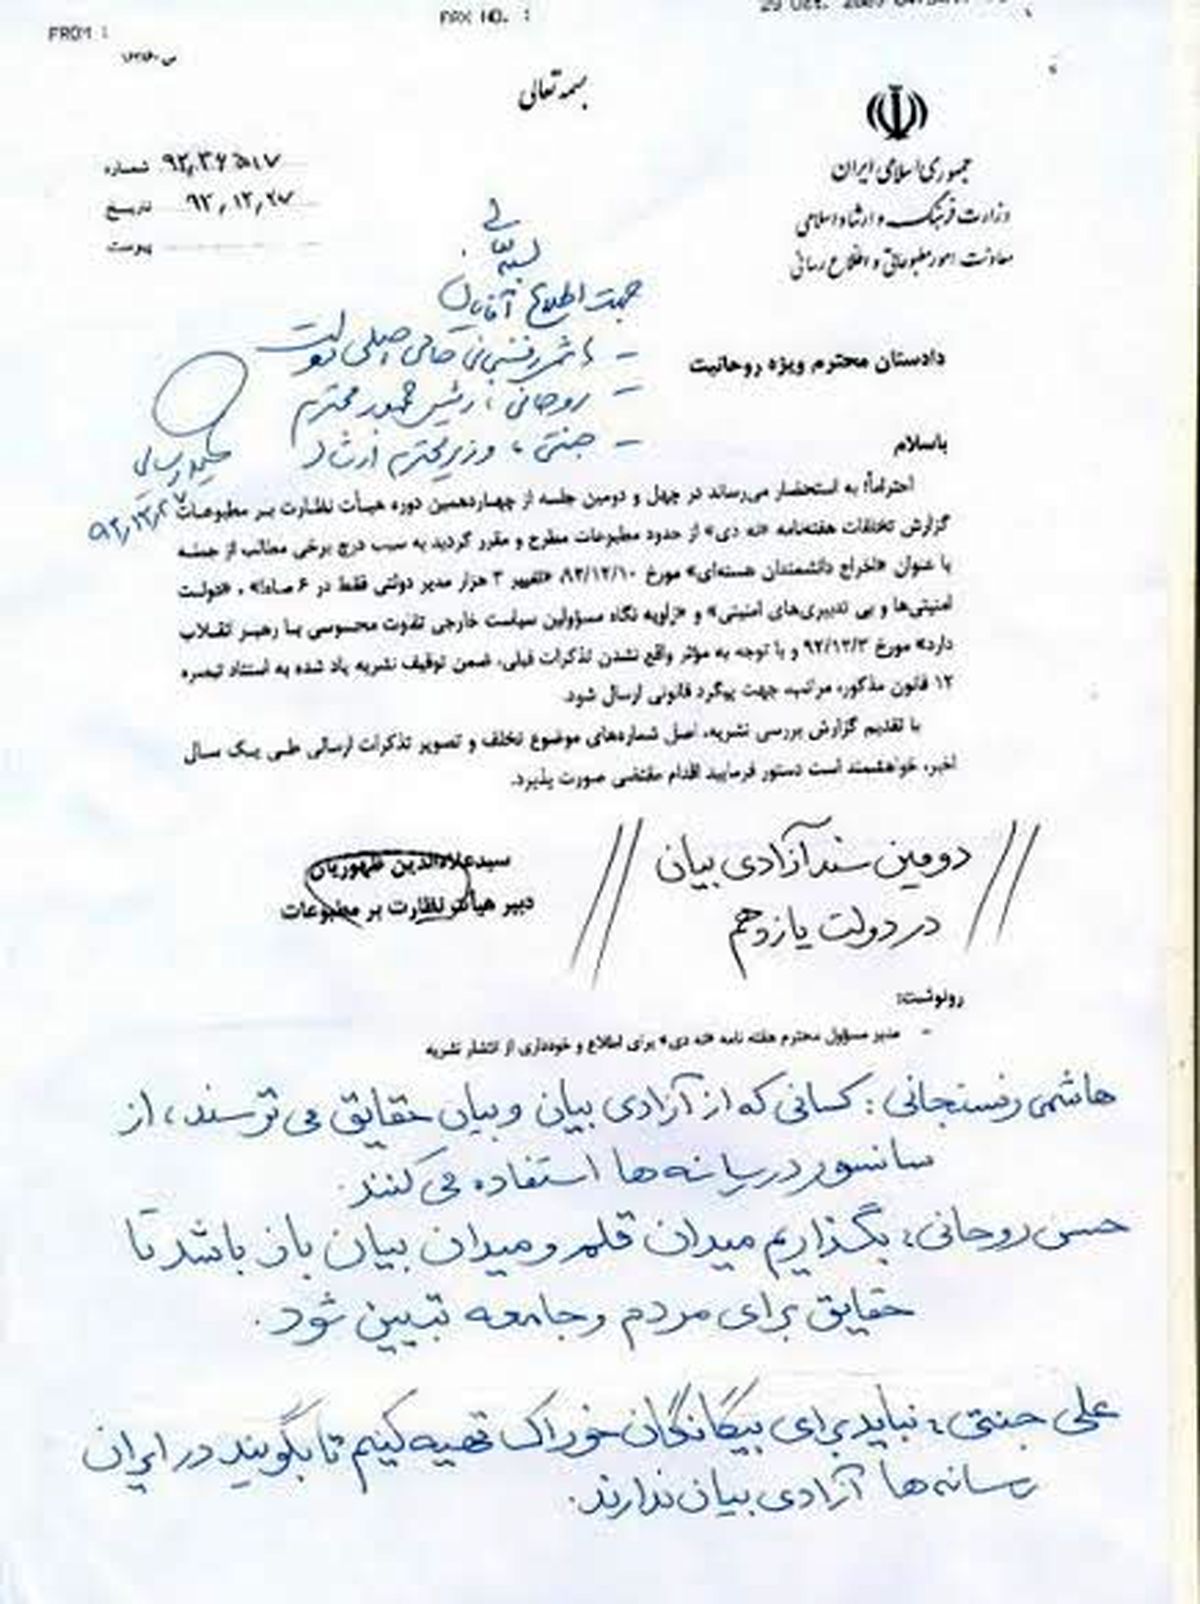 FROM :
FAX NO. :
بسمه تعالی
جمهوری اسلامی ایران
وزارت فرهنگ و ارشاد اسلامی
معاونت امور مطبوعاتی و اطلاع رسانی
شماره
تاریخ ۹۲,۱۲,۲۷
پیوست
بسمه تعالی
جهت اطلاع آقایان
– هاشمی رفسنجانی حامی اصلی دولت
– روحانی، رئیس جمهور محترم
– جنتی، وزیر محترم ارشاد
حمید رسایی
دادستان محترم ویژه روحانیت
باسلام
احتراماً؛ به استحضار می‌رساند در چهل و دومین جلسه از چهاردهمین دوره هیأت نظارت بر مطبوعات
گزارش تخلفات هفته‌نامه «نه دی» از حدود مطبوعات مطرح و مقرر گردید به سبب درج برخی مطالب از جمله
با عنوان «اخراج دانشمندان هسته‌ای» مورخ ۹۲/۱۲/۱۰، «تغییر ۳ هزار مدیر دولتی فقط در ۶ ماه!» ، «دولت
امنیتی‌ها و بی تدبیری‌های امنیتی» و «زاویه نگاه مسؤولین سیاست خارجی تفاوت محسوسی با رهبر انقلاب
دارد» مورخ ۹۲/۱۲/۳ و با توجه به مؤثر واقع نشدن تذکرات قبلی، ضمن توقیف نشریه یاد شده به استناد تبصره
۱۲ قانون مذکور، مراتب جهت پیگرد قانونی ارسال شود.
با تقدیم گزارش بررسی نشریه، اصل شماره‌های موضوع تخلف و تصویر تذکرات ارسالی طی یک سال
اخیر، خواهشمند است دستور فرمایید اقدام مقتضی صورت پذیرد.
سیدعلاءالدین ظهوریان
دبیر هیأت نظارت بر مطبوعات
دومین سند آزادی بیان
در دولت یازدهم
رونوشت:
– مدیر مسؤول محترم هفته نامه «نه دی» برای اطلاع و خودداری از انتشار نشریه
هاشمی رفسنجانی: کسانی که از آزادی بیان و بیان حقایق می ترسند، از
سانسور در رسانه ها استفاده می کنند.
حسن روحانی: بگذاریم میدان قلم و میدان بیان باز باشد تا
حقایق برای مردم و جامعه تبیین شود.
علی جنتی: نباید برای بیگانگان خوراک تهیه کنیم تا بگویند در ایران
رسانه ها آزادی بیان ندارند.